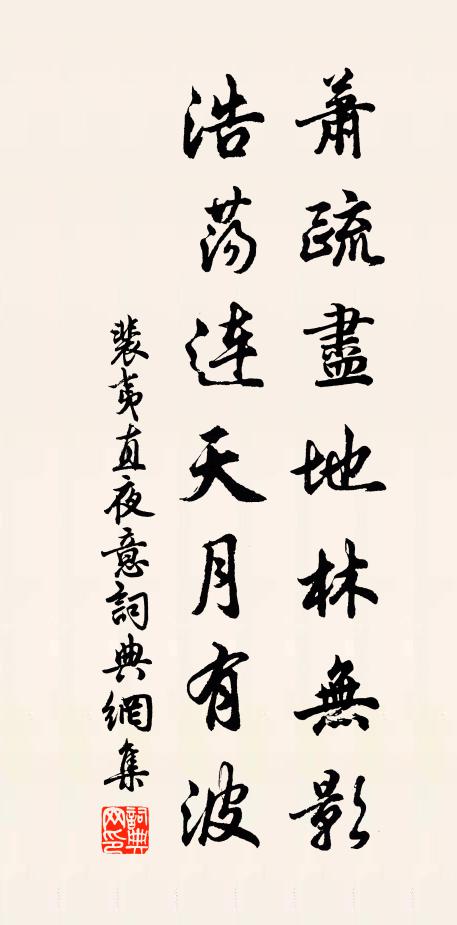 蕭疏盡地林無影
浩蕩連天月有波
裴夷直夜意詞典網集
詞典網印